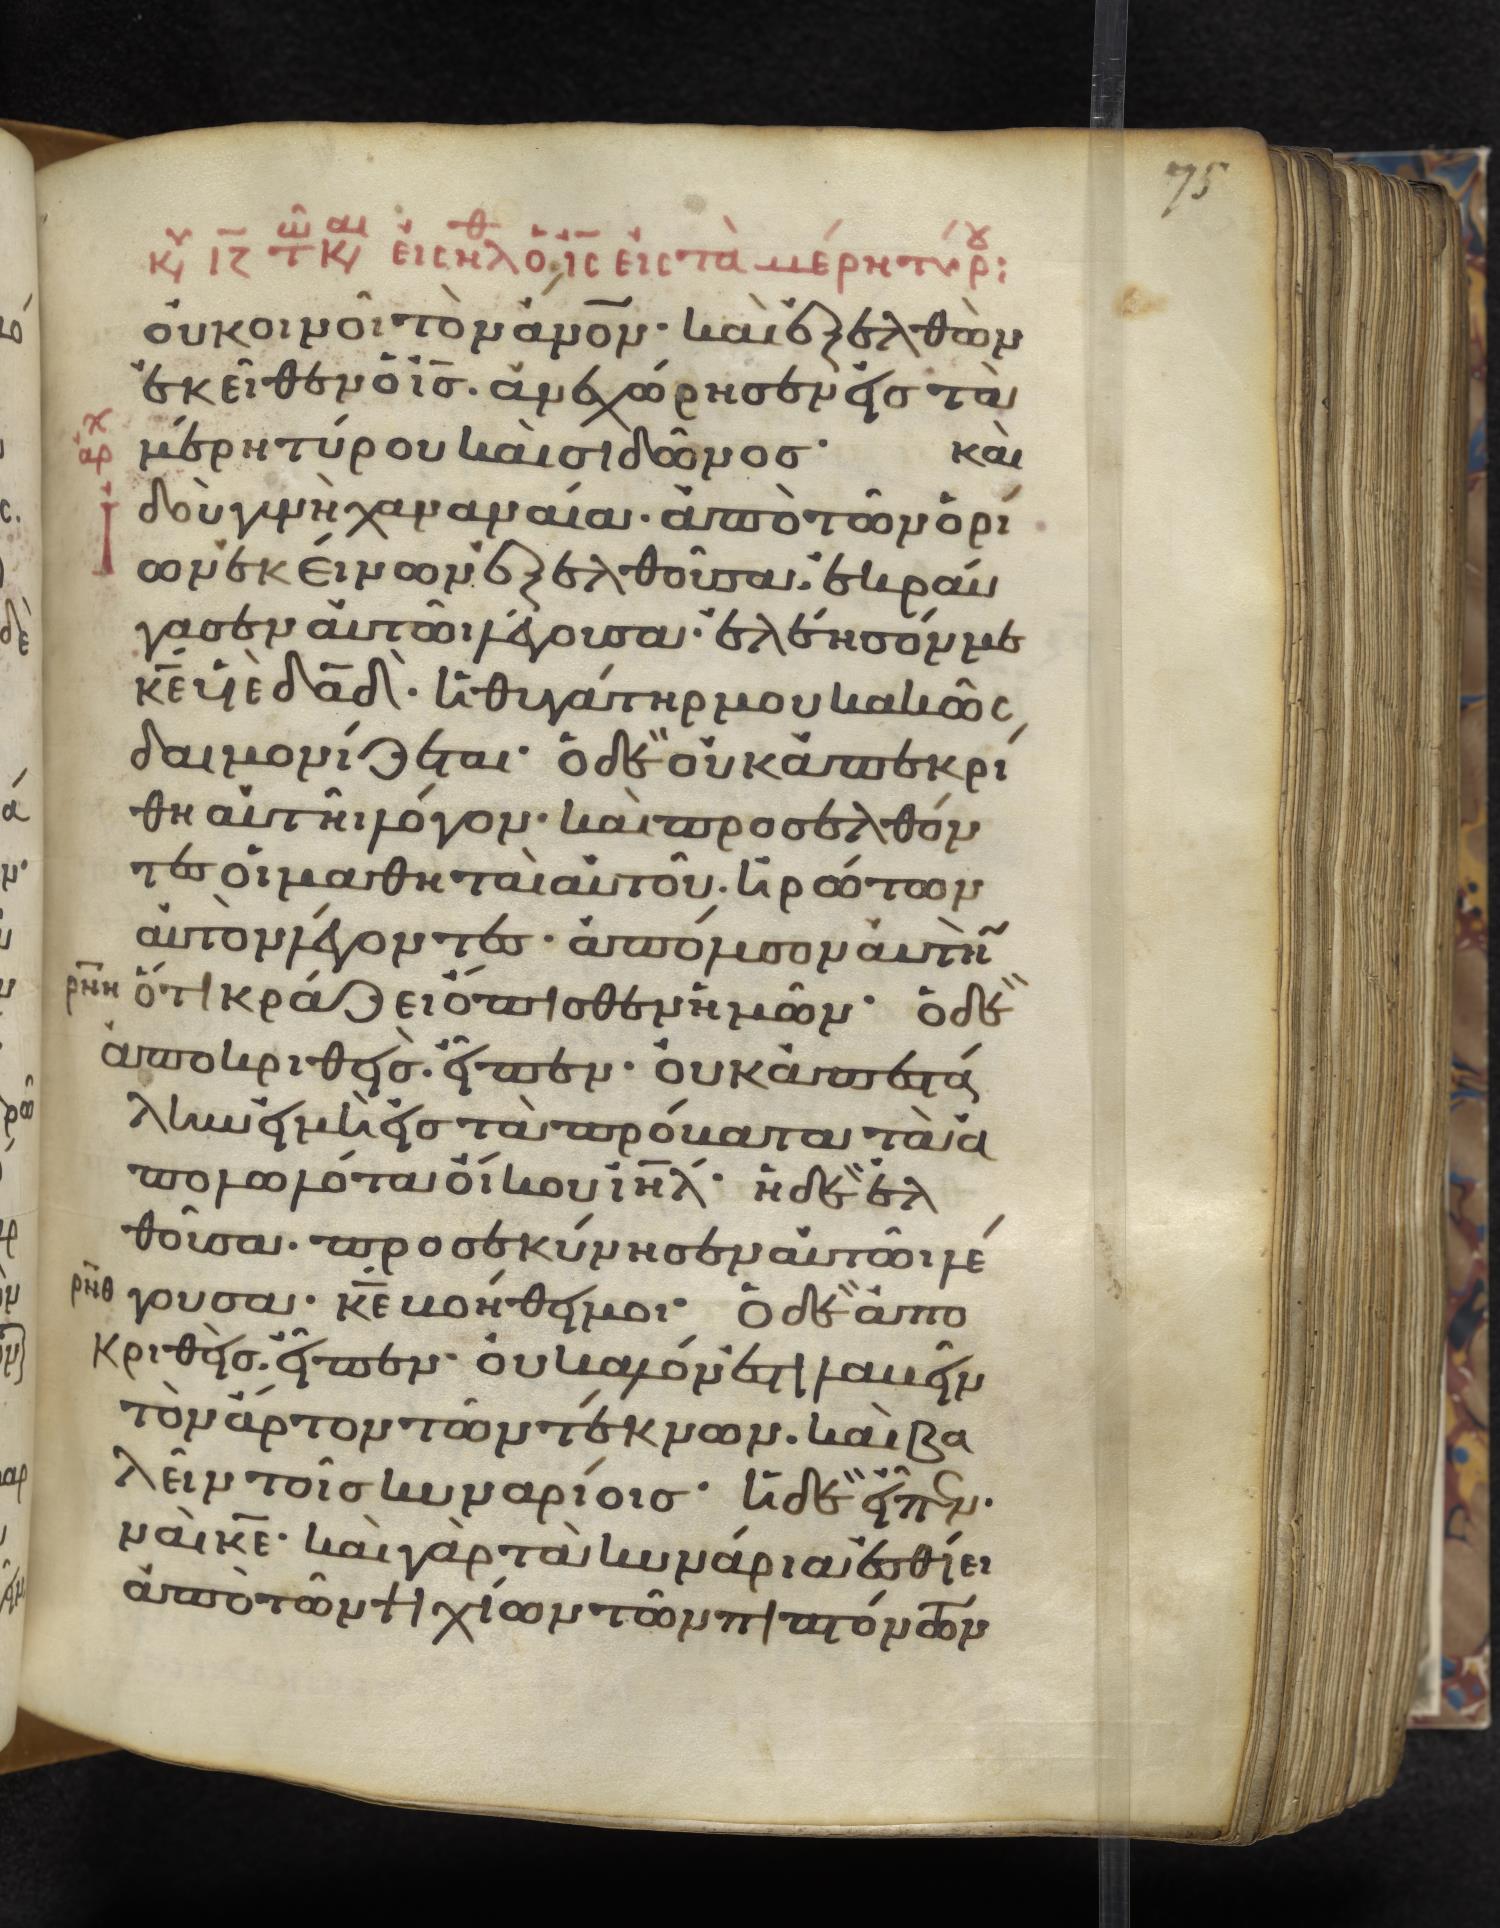 75
κυ ιζ τω καιρω εισηλθ ὁ ἰς εἰς τὰ μέρη τύρου:
οὐ κοινοῖ τὸν ἄνον· καὶ ἐξελθὼν
ἐκεῖθεν ὁ ἰς. ἀνεχώρησεν εἰς τὰ
αρχ μέρη τύρου καὶ σιδῶνος· καὶ
ἰδοὺ γυνὴ χαναναία. ἀπὸ τῶν ὁρί
ων ἐκείνων ἐξελθοῦσα. ἐκραύ
γασεν αὐτῶι λέγουσα· ἐλέησόν με
κε υἱὲ δαδ· ἡ θυγάτηρ μου κακῶς
δαιμονίζεται· ὁ δὲ οὐκ ἀπεκρί
θη αὐτῆι λόγον· καὶ προσελθόν
τες οἱ μαθηταὶ αὐτοῦ. ἠρώτων
αὐτὸν λέγοντες· ἀπόλυσον αὐτὴν
ρνη ὅτι κράζει ὄπισθεν ἡμῶν· ὁ δὲ
ἀποκριθεὶς. εἶπεν· οὐκ ἀπεστά
λην εἰ μὴ εἰς τὰ πρόβατα τὰ ἀ
πολωλότα οἴκου ἰηλ· ἡ δὲ ἐλ
θοῦσα. προσεκύνησεν αὐτῶι λέ
ρνθ γουσα· κε βοήθει μοι· ὁ δὲ ἀπο
κριθεὶς. εἶπεν· οὐ καλόν ἐστι λαβεῖν
τὸν ἄρτον τῶν τέκνων. καὶ βα
λεῖν τοῖς κυναρίοις· ἡ δὲ εἶπεν·
ναὶ κε· καὶ γὰρ τὰ κυνάρια ἐσθίει
ἀπὸ τῶν ψιχίων τῶν πιπτόντων